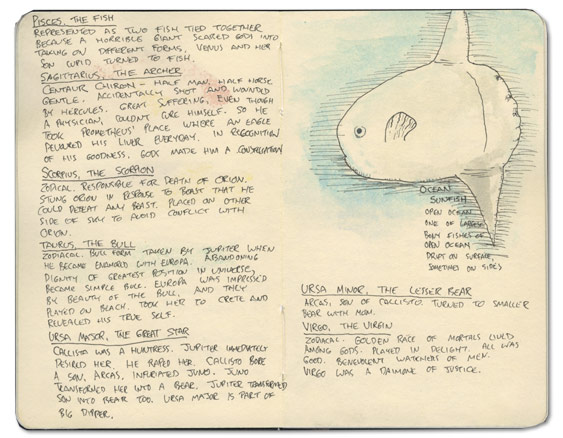 PISCES, THE FISH
REPRESENTED AS TWO FISH TIED TOGETHER
BECAUSE A HORRIBLE GIANT SCARED GODS INTO
TAKING ON DIFFERENT FORMS, VENUS AND HER
SON CUPID TURNED TO FISH.
SAGITTARIUS, THE ARCHER
CENTAUR CHIRON - HALF MAN, HALF HORSE.
GENTLE. ACCIDENTALLY SHOT AND WOUNDED
BY HERCULES. GREAT SUFFERING, EVEN THOUGH
A PHYSICIAN, COULDNT CURE HIMSELF. SO HE
TOOK PROMETHEUS' PLACE WHERE AN EAGLE
DEVOURED HIS LIVER EVERYDAY. IN RECOGNITION
OF HIS GOODNESS, GODS MADE HIM A CONSTELLATION
SCORPIUS, THE SCORPION
ZODICAL. RESPONSIBLE FOR DEATH OF ORION.
STUNG ORION IN RESPONSE TO BOAST THAT HE
COULD DEFEAT ANY BEAST. PLACED ON OTHER
SIDE OF SKY TO AVOID CONFLICT WITH
ORION.
TAURUS, THE BULL
ZODIACAL. BULL FORM TAKEN BY JUPITER WHEN
HE BECAME ENAMORED WITH EUROPA. ABANDONING
DIGNITY OF GREATEST POSITION IN UNIVERSE,
BECAME SIMPLE BULL. EUROPA WAS IMPRESSED
BY BEAUTY OF THE BULL, AND THEY
PLAYED ON BEACH. TOOK HER TO CRETE AND
REVEALED HIS TRUE SELF.
URSA MAJOR, THE GREAT STAR
CALLISTO WAS A HUNTRESS. JUPITER IMMEDIATELY
DESIRED HER. HE RAPED HER. CALLISTO BORE
A SON, ARCAS, INFURIATED JUNO. JUNO
TRANSFORMED HER INTO A BEAR, JUPITER TRANSFORMED
SON INTO BEAR TOO. URSA MAJOR IS PART OF
BIG DIPPER.
OCEAN
SUNFISH
OPEN OCEAN
ONE OF LARGEST
BONY FISHES OF
OPEN OCEAN
DRIFT ON SURFACE,
SOMETIMES ON SIDES
URSA MINOR, THE LESSER BEAR
ARCAS, SON OF CALLISTO. TURNED TO SMALLER
BEAR WITH MOM.
VIRGO, THE VIRGIN
ZODICAL. GOLDEN RACE OF MORTALS LIVED
AMONG GODS. PLAYED IN DELIGHT. ALL WAS
GOOD. BENEVOLENT WATCHERS OF MEN.
VIRGO WAS A DAIMONE OF JUSTICE.